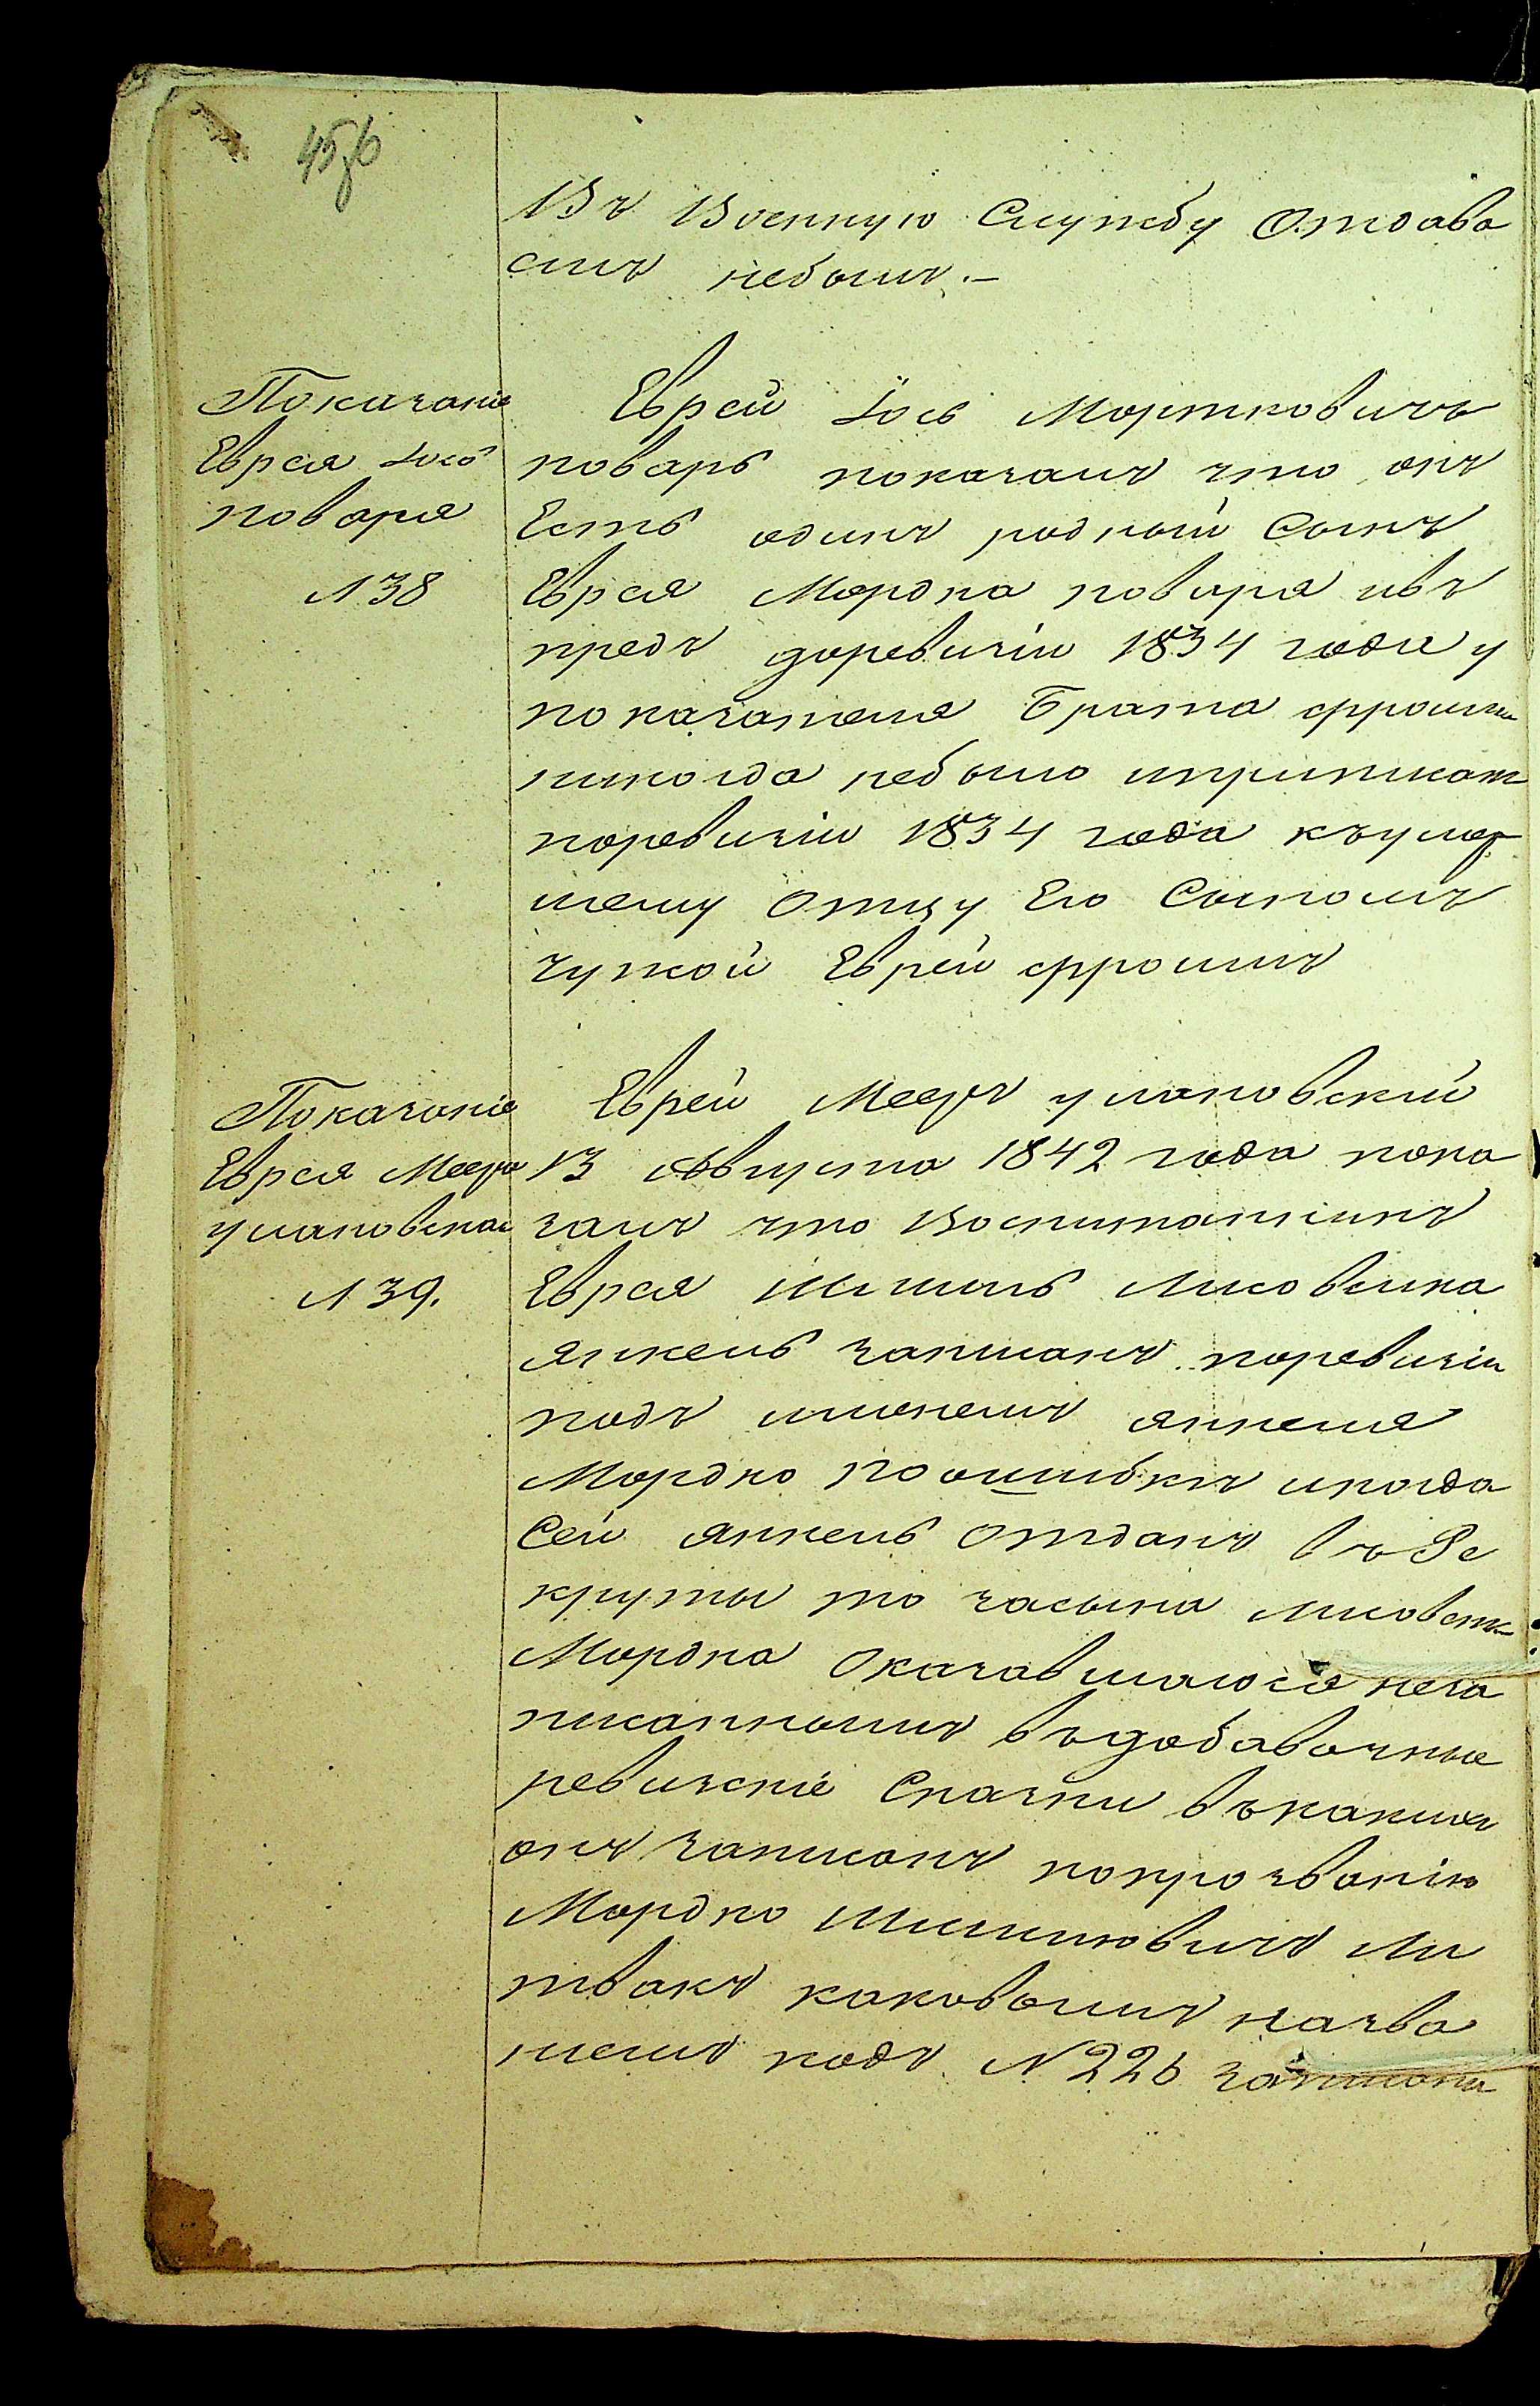 45об
Въ Военную Службу Отдава
емъ небылъ.—
Показаніе
Еврея Іося
повара
№ 38
Еврей Іось Мортковичъ
поваръ показалъ что онъ
Есть одинъ родный Сынъ
Еврея Мордка повара ивъ
предъ доревизіи 1834 года у
показателя Брата фроима
никогда небыло и приписан
поревизіи 1834 года къумер
шему Отцу Его Сыномъ
чужой Еврей фроимъ
Показаніе
Еврея Меера
улановскаго
№ 39.
Еврей Мееръ улановскій
13 Августа 1842 года пока
залъ что Воспитанникъ
Еврея Шмиль Лисовика
янкель записанъ поревизіи
подъ именемъ янкеля
Мордко поошибкѣ икогда
Сей янкель отданъ въ Ре
круты то засына
Мордка Оказавшагося неза
писаннымъ въдобавочные
ревизскіе Сказки въкакихъ
онъ записанъ попрозванію
Мордко Шмилювичъ Ли
твакъ каковымъ назва
ніемъ подъ № 226 записанъ